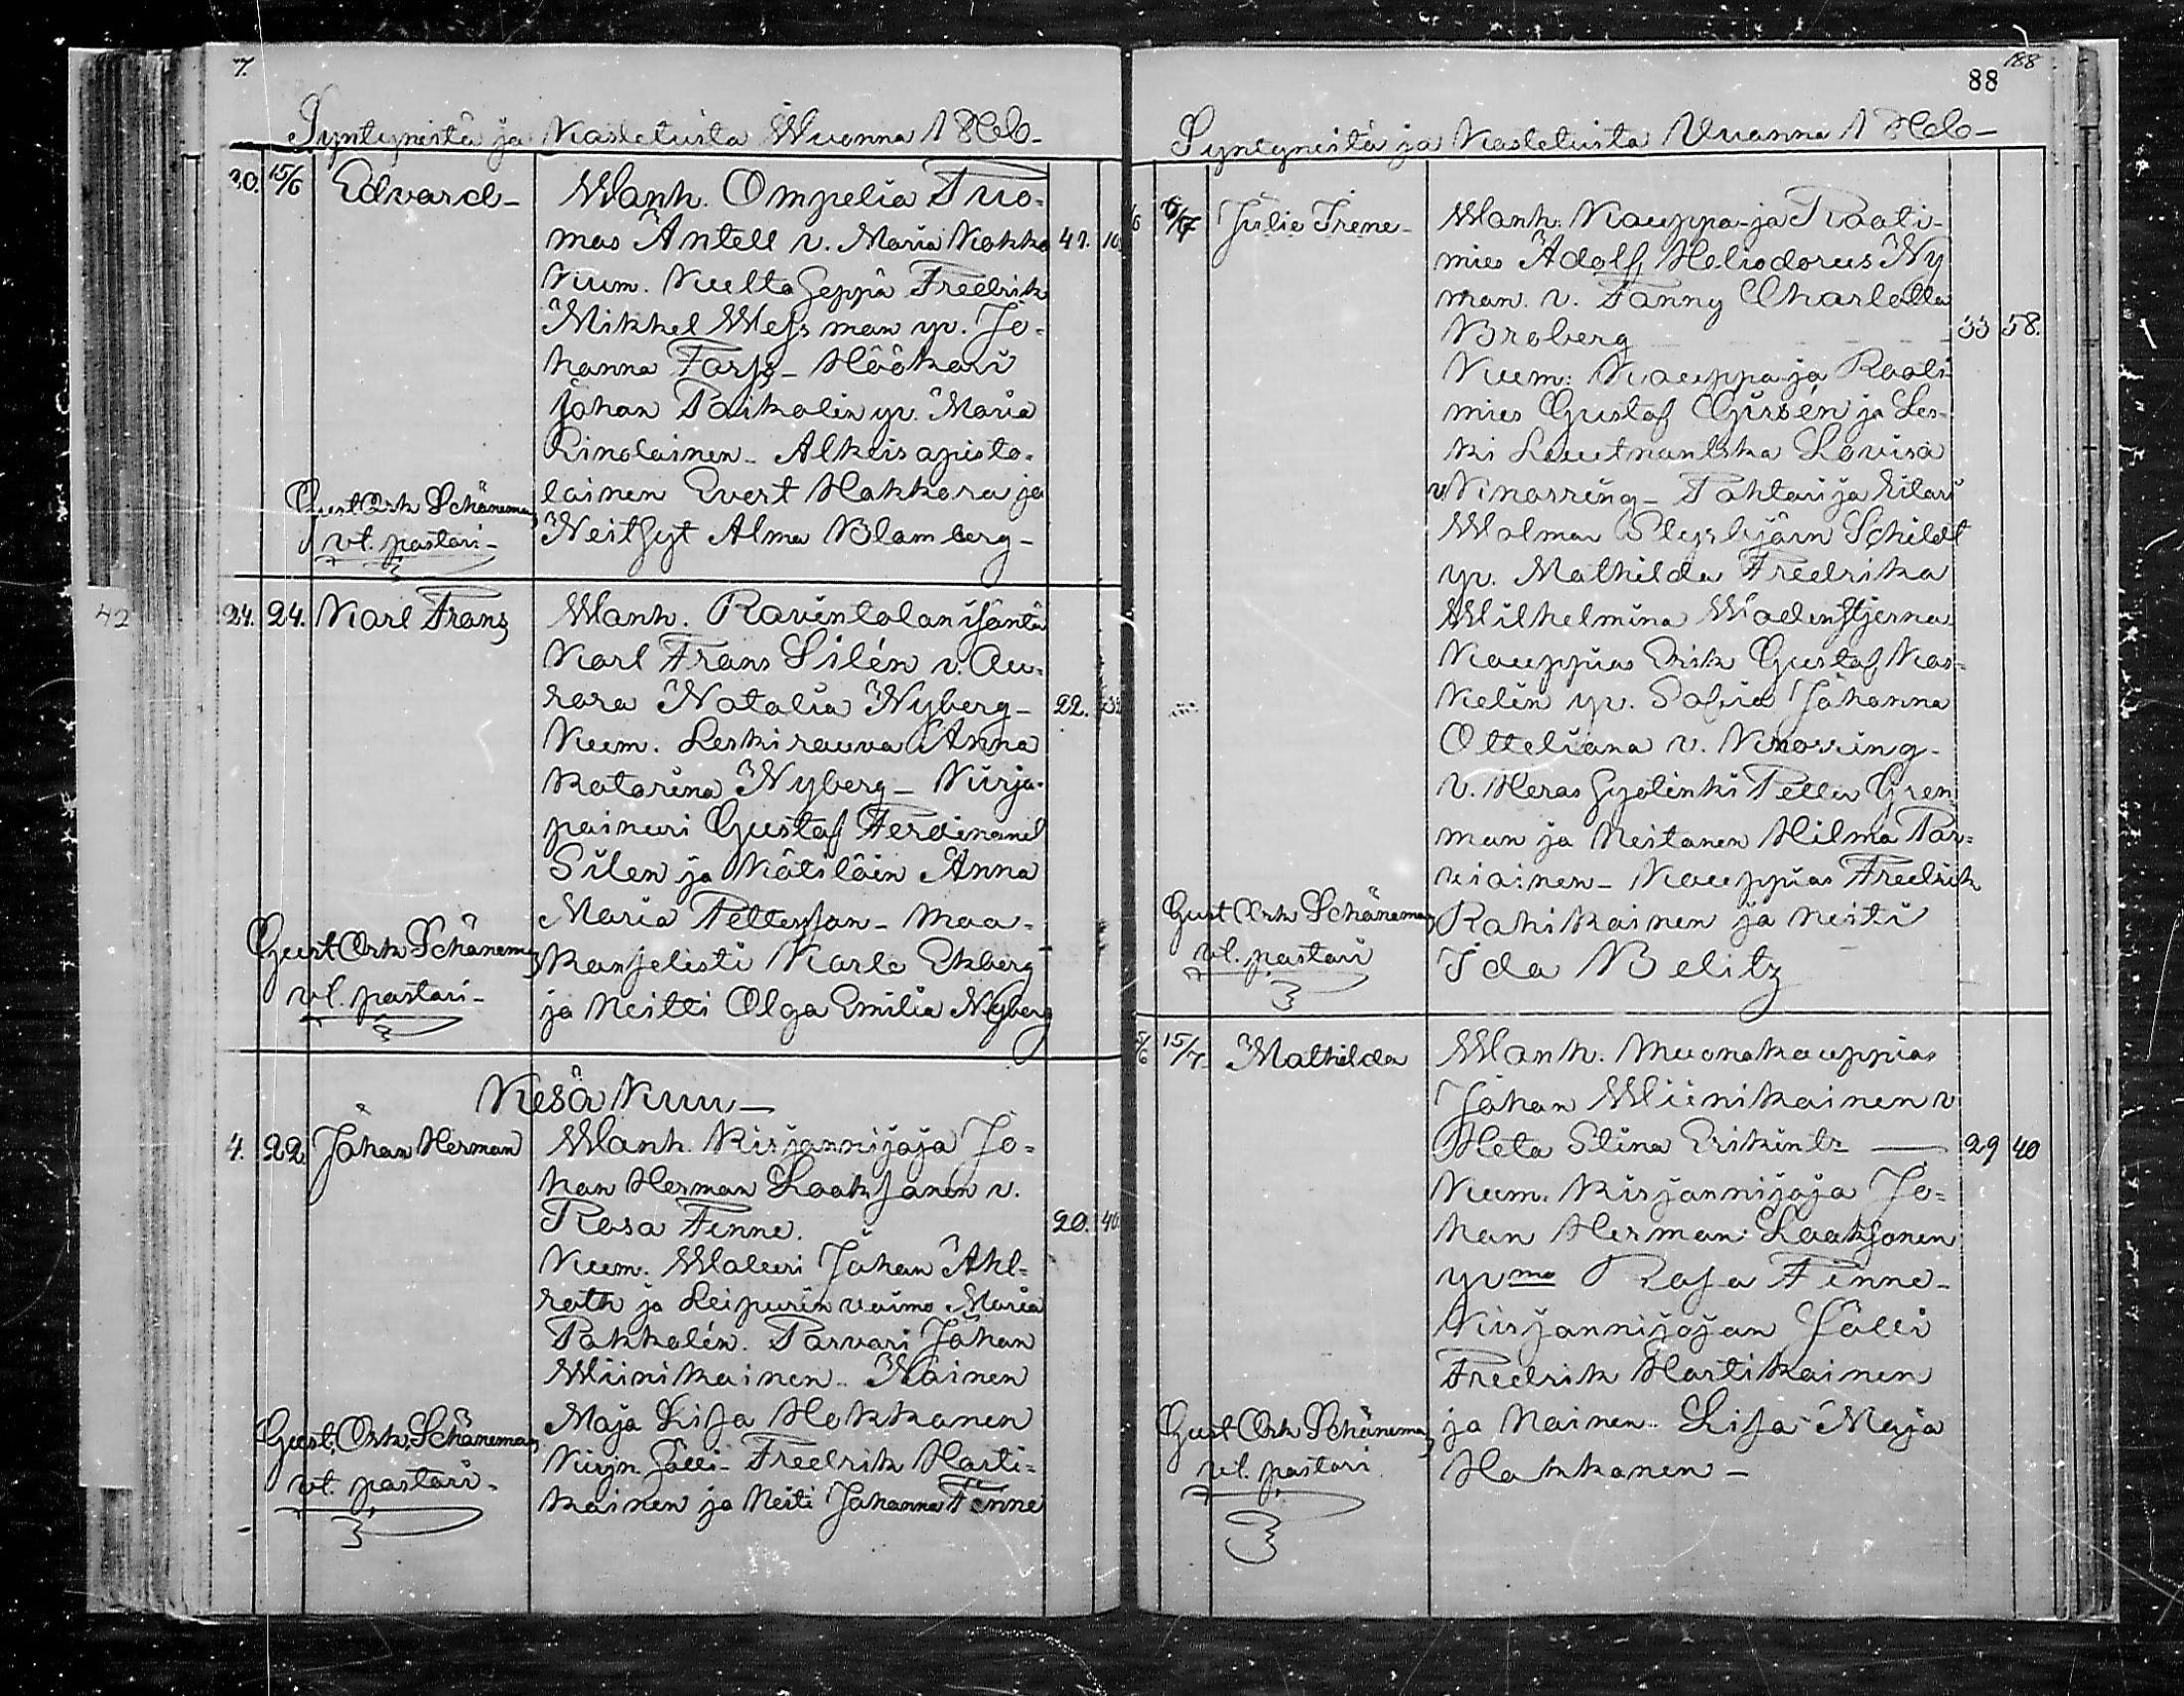 7.
Syntyneistä ja Kastetuista Wuonna 18
20. 15/6 Edvard- Wanh. Ompelia Tuo-
mas Antell v. Maria Kokko 41.
Kum. Kulta Seppä Fredrik
Mikkel Wessman yv. Jo-
hanna Forss- Höökari
Johan Paikalin yv. Maria
Rinolainen- Alkeisopisto-
lainen Evert Hakkara ja
Neitsyt Alma Blomberg-
Gust Osk Schöneman
vt. pastori-
42
24. 24. Karl Frans Wanh. Ravintolan isäntä
Karl Frans Silén v. Au-
rora Natalia Nyberg- 22.
Kum. Leskirouva Anna
Katarina Nyberg- Kirja-
painuri Gustaf Ferdinand
Silen ja Kätilöin Anna
Maria Pettersson- Maa-
kanselisti Karle Ekberg
ja Neitti Olga Emilia Nyberg
Gust Osk Schöneman
vt. pastori-
Kesä Kuu-
4. 22 Johan Herman Wanh. Kirjannijaja Jo-
han Herman Laaksonen v.
Rosa Finne. 20.
Kum. Maluri Johan Ahl-
roth ja Leipurin vaimo Maria
Pakkalén. Parvari Johan
Wiinikainen- Nainen
Maja Lisa Hokkanen
Kirjn. Sälli- Fredrik Harti-
kainen ja Neiti Johanna Finne
Gust. Osk. Schöneman
vt. pastori-
188
88
Syntyneistä ja Kastetuista Vuonna 18
6/7 Julie Irene- Wanh. Kauppa- ja Raati-
mies Adolf Heliodorus Ny
man. v. Fanny Charlotta
Broberg 33 58.
Kum: Kauppa ja Raati-
mies Gustaf Girsén ja Les-
ki Leutnantska Lovisa
v Knorring- Tohtari ja Ritari
Wolmar Styrbjörn Schildt
yv. Mathilda Fredrika
Wilhelmina Wadenstjerna
Kauppias Erik Gustaf Kas-
kelin yv. Sofia Johanna
Otteliana v. Knorring-
V. Heras Gyolinki Petter Gren-
man ja Neitanen Hilma Par-
viainen- Kauppias Fredrik
Rahikainen ja neiti
Ida Belitz
Gust Osk Schöneman
vt. pastori
15/7. Mathilda Wanh. Muonakauppias
Johan Wiinikainen v
Heta Stina Erikintr — 29 40
Kum. Kirjannijaja Jo-
han Herman Laaksonen
yvmo Rosa Finne-
Kirjannijajan Sälli
Fredrik Hartikainen
ja Nainen- Lisa Maja
Hakkanen-
Gust Osk Schöneman
vt. pastori